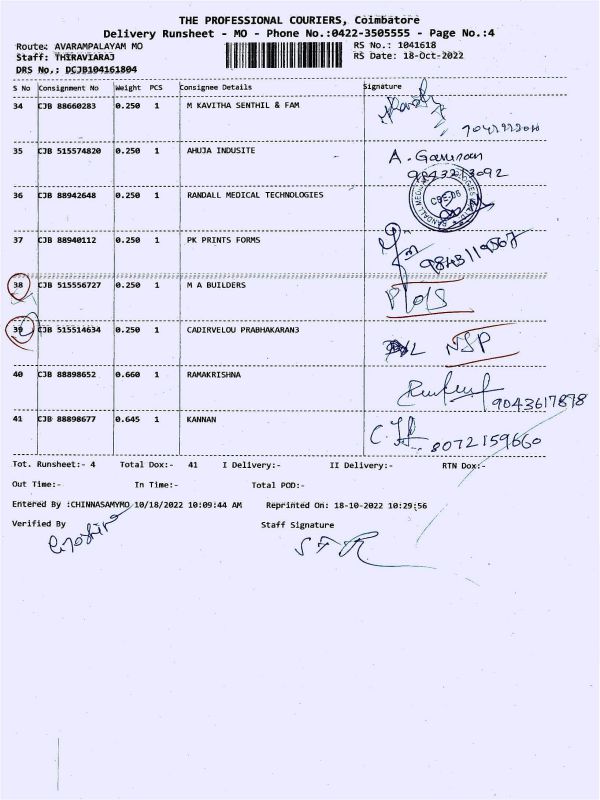 THE PROFESSIONAL COURIERS, Coimbatore
Delivery Runsheet - MO - Phone No.:0422-3505555 - Page No.:4
Route: AVARAMPALAYAM MO RS No.: 1041618
Staff: THIRAVIARAJ RS Date: 18-Oct-2022
DRS No.: DCJB104161804
S No Consignment No Weight PCS Consignee Details Signature
34 CJB 88660283 0.250 1 M KAVITHA SENTHIL & FAM
35 CJB 515574820 0.250 1 AHUJA INDUSITE A.
36 CJB 88942648 0.250 1 RANDALL MEDICAL TECHNOLOGIES
37 CJB 88940112 0.250 1 PK PRINTS FORMS
9843119567
38 CJB 515556727 0.250 1 M A BUILDERS
39 CJB 515514634 0.250 1 CADIRVELOU PRABHAKARAN3
NSP
40 CJB 88898652 0.660 1 RAMAKRISHNA
9043617878
41 CJB 88898677 0.645 1 KANNAN
8072159660
Tot. Runsheet:- 4 Total Dox:- 41 I Delivery:- II Delivery:- RTN Dox:-
Out Time:- In Time:- Total POD:-
Entered By :CHINNASAMYMO 10/18/2022 10:09:44 AM Reprinted On: 18-10-2022 10:29:56
Verified By Staff Signature